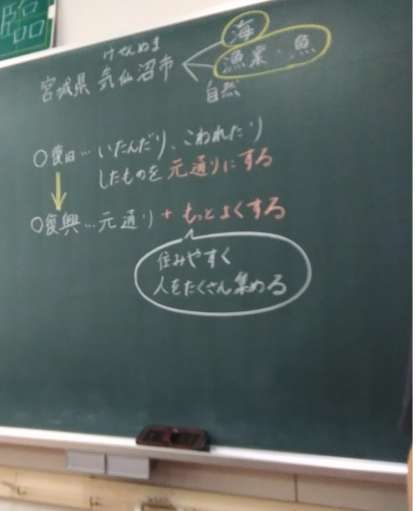 臨
けせんぬま
宮城県 気仙沼市
海
漁業・魚
自然
○復旧…いたんだり、こわれたり
したものを元通りにする
○復興…元通り+もっとよくする
住みやすく
人をたくさん集める